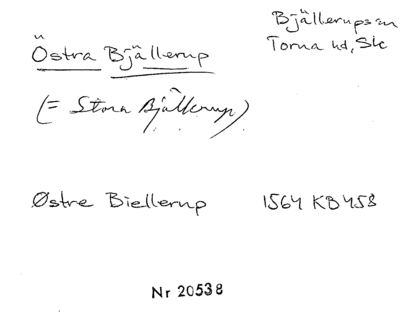 Östra Bjällerup
Bjällerups sn
Torna hd, Skc
(= Stora Bjällerup)
Østre Biellerup 1564 KB 458
Nr 20538